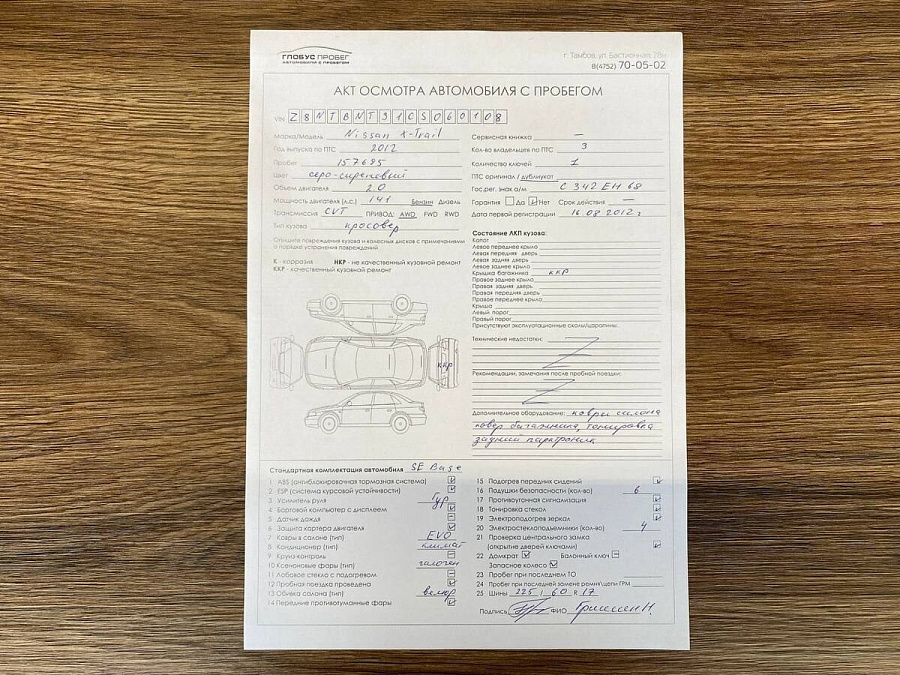 ГЛОБУС ПРОБЕГ
АВТОМОБИЛИ С ПРОБЕГОМ
г. Тамбов, ул. Бастионная, 28н
8(4752) 70-05-02
АКТ ОСМОТРА АВТОМОБИЛЯ С ПРОБЕГОМ
VIN Z8NTBNT31CS060108
Марка/Модель Nissan X-Trail
Год выпуска по ПТС 2012
Пробег 157695
Цвет серо-сиреневый
Объем двигателя 2.0
Мощность двигателя (л.с.) 141 Бензин Дизель
Трансмиссия CVT ПРИВОД: AWD FWD RWD
Тип кузова кросовер
Опишите повреждения кузова и колесных дисков с примечаниями
о порядке устранения повреждений
К - коррозия НКР - не качественный кузовной ремонт
ККР - качественный кузовной ремонт
ккр
Сервисная книжка —
Кол-во владельцев по ПТС 3
Количества ключей 1
ПТС оригинал / дубликат
Гос.рег. знак а/м С 342 ЕН 68
Гарантия Да Нет Срок действия —
Дата первой регистрации 16 08 2012 г
Состояние ЛКП кузова:
Капот
Левое переднее крыло
Левая передняя дверь
Левая задняя дверь
Левое заднее крыло
Крышка багажника ккр
Правое заднее крыло
Правая задняя дверь
Правая передняя дверь
Правое переднее крыло
Крыша
Левый порог
Правый порог
Присутствуют эксплуатационные сколы/царапины.
Технические недостатки:
Рекомендации, замечания после пробной поездки:
Дополнительное оборудование: коври салона
ковер багажника, тонировка
задний парктроник
Стандартная комплектация автомобиля SE Base
1 ABS (антиблокировочная тормозная система)
2 ESP (система курсовой устойчивости)
3 Усилитель руля Гур
4 Бортовой компьютер с дисплеем
5 Датчик дождя
6 Защита картера двигателя
7 Ковры в салоне (тип) EVO
8 Кондиционер (тип) климат
9 Круиз-контроль
10 Ксеноновые фары (тип) галоген
11 Лобовое стекло с подогревом
12 Пробная поездка проведена
13 Обивка салона (тип) велюр
14 Передние противотуманные фары
15 Подогрев передних сидений
16 Подушки безопасности (кол-во) 6
17 Противоугонная сигнализация
18 Тонировка стекол
19 Электроподогрев зеркал
20 Электростеклоподъемники (кол-во) 4
21 Проверка центрального замка
(открытие дверей ключами)
22 Домкрат Балонный ключ
Запасное колесо
23 Пробег при последнем ТО
24 Пробег при последней замене ремня/цепи ГРМ
25 Шины 225 / 60 R 17
Подпись ФИО